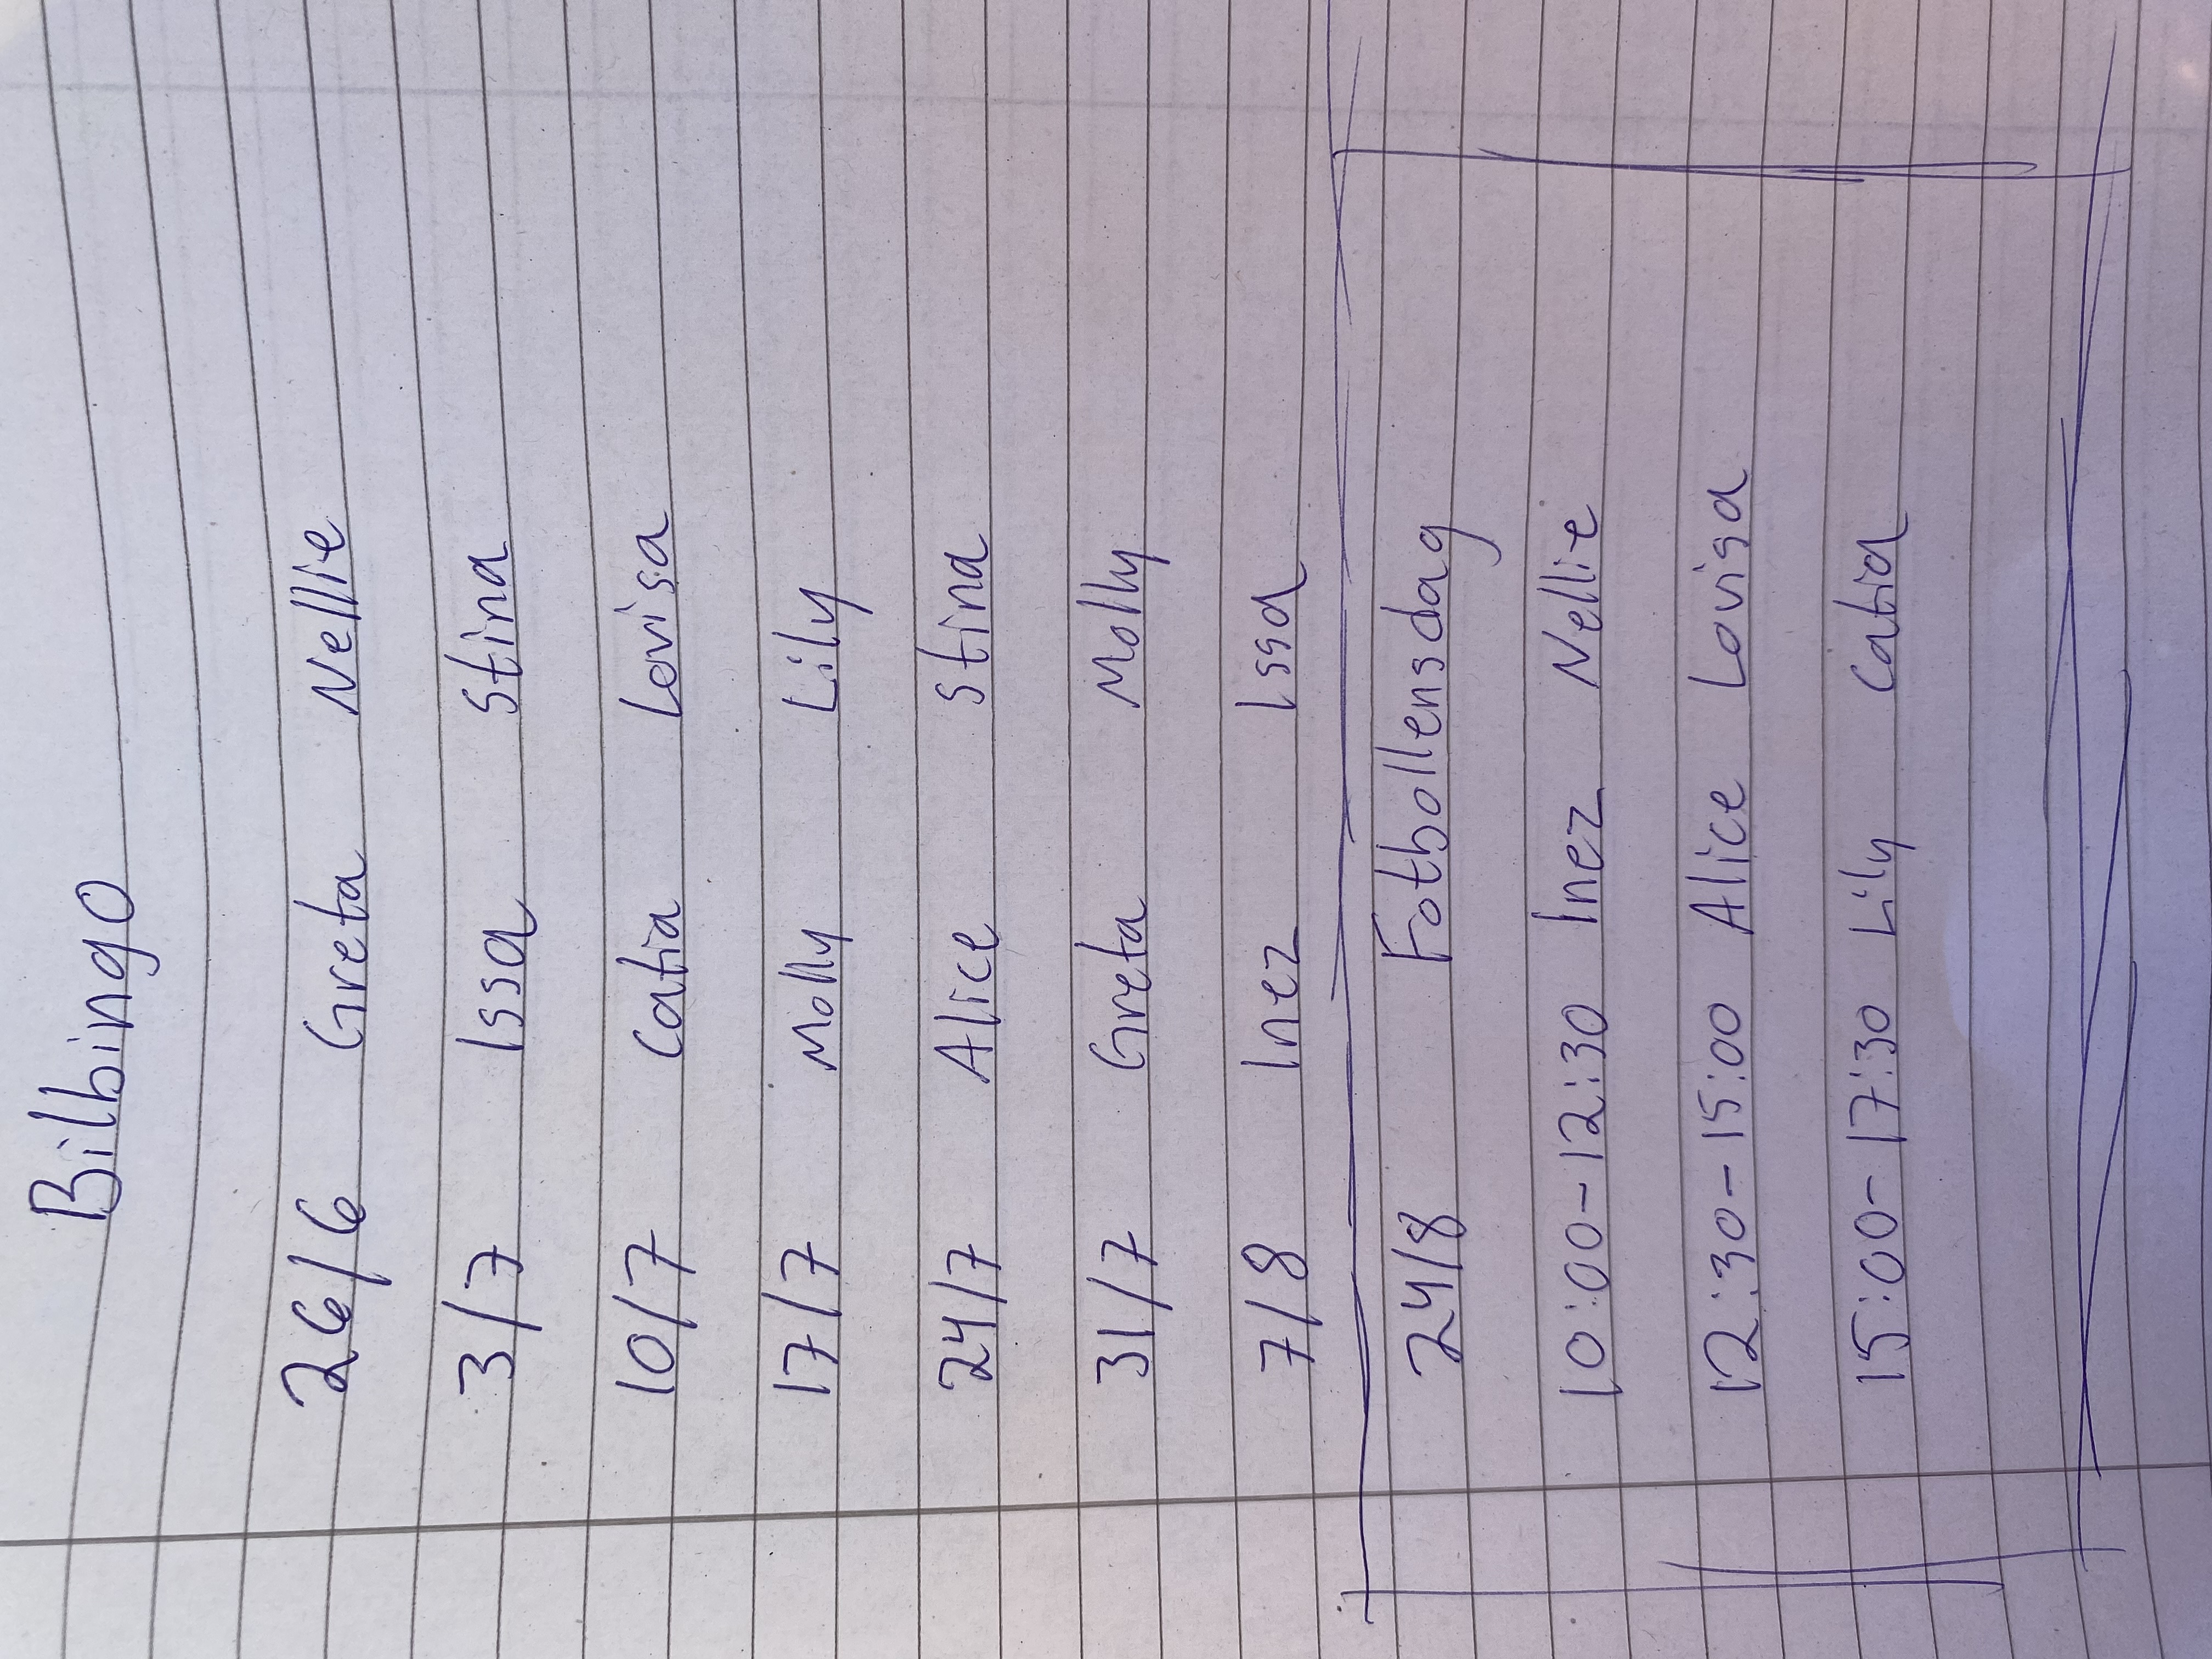 Bilbingo
26/6 Greta Nellie
3/7 Issa Stina
10/7 Catia Lovisa
17/7 Molly Lily
24/7 Alice Stina
31/7 Greta Molly
7/8 Inez Issa
24/8 Fotbollensdag
10:00-12:30 Inez Nellie
12:30-15:00 Alice Lovisa
15:00-17:30 Lily Catia